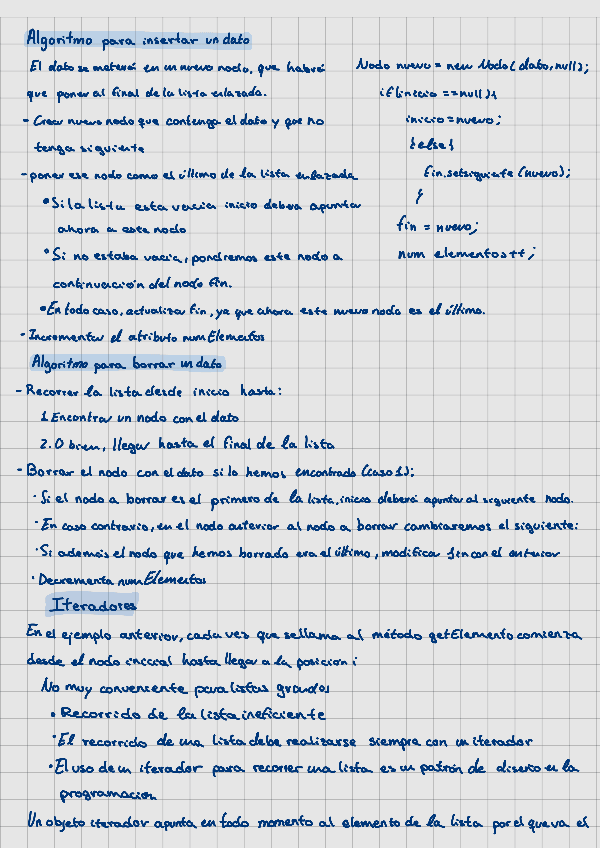 Algoritmo para insertar un dato
El dato se meterá en un nuevo nodo, que habrá
que poner al final de la lista enlazada.
- Crear nuevo nodo que contenga el dato y que no
tenga siguiente
- poner ese nodo como el último de la lista enlazada
• Si la lista esta vacia inicio debera apuntar
ahora a este nodo
• Si no estaba vacia, pondremos este nodo a
continuación del nodo fin.
• En todo caso, actualizar fin, ya que ahora este nuevo nodo es el último.
- Incrementar el atributo numElementos
Nodo nuevo = new Nodo(dato, null);
if(inicio ==null){
inicio = nuevo;
}else{
fin.setsiguiente (nuevo);
}
fin = nuevo;
num elementos++;
Algoritmo para borrar un dato
- Recorrer la lista desde inicio hasta:
1. Encontrar un nodo con el dato
2. O bien, llegar hasta el final de la lista
- Borrar el nodo con el dato si lo hemos encontrado (caso 1):
· Si el nodo a borrar es el primero de la lista, inicio deberá apuntar al siguiente nodo.
· En caso contrario, en el nodo anterior al nodo a borrar cambiaremos el siguiente:
· Si además el nodo que hemos borrado era el último, modificar fin con el anterior
· Decrementa numElementos
Iteradores
En el ejemplo anterior, cada vez que se llama al método getElemento comienza
desde el nodo inicial hasta llegar a la posicion i
No muy conveniente para listas grandes
• Recorrido de la lista ineficiente
• El recorrido de una lista debe realizarse siempre con un iterador
• El uso de un iterador para recorrer una lista es un patrón de diseño en la
programacion
Un objeto iterador apunta en todo momento al elemento de la lista por el que va el